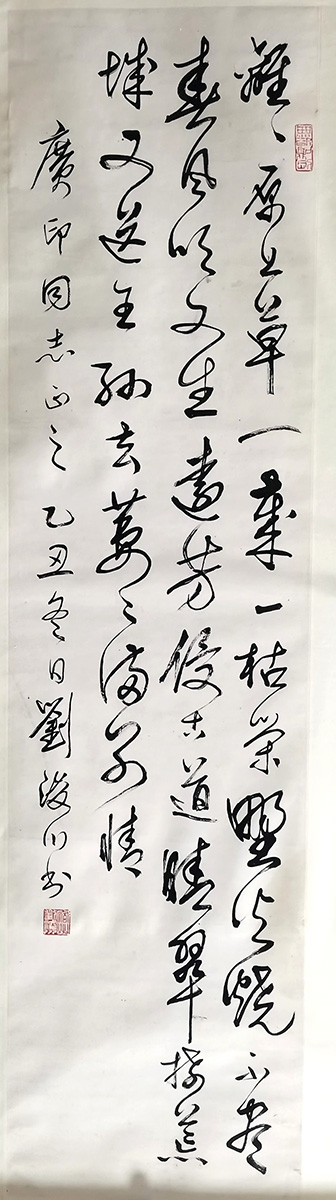 離〻原上草一歲一枯榮野火燒不盡
春風吹又生遠芳侵古道晴翠接荒
城又送王孫去萋〻滿別情
廣印同志正之 乙丑冬日劉浚川書